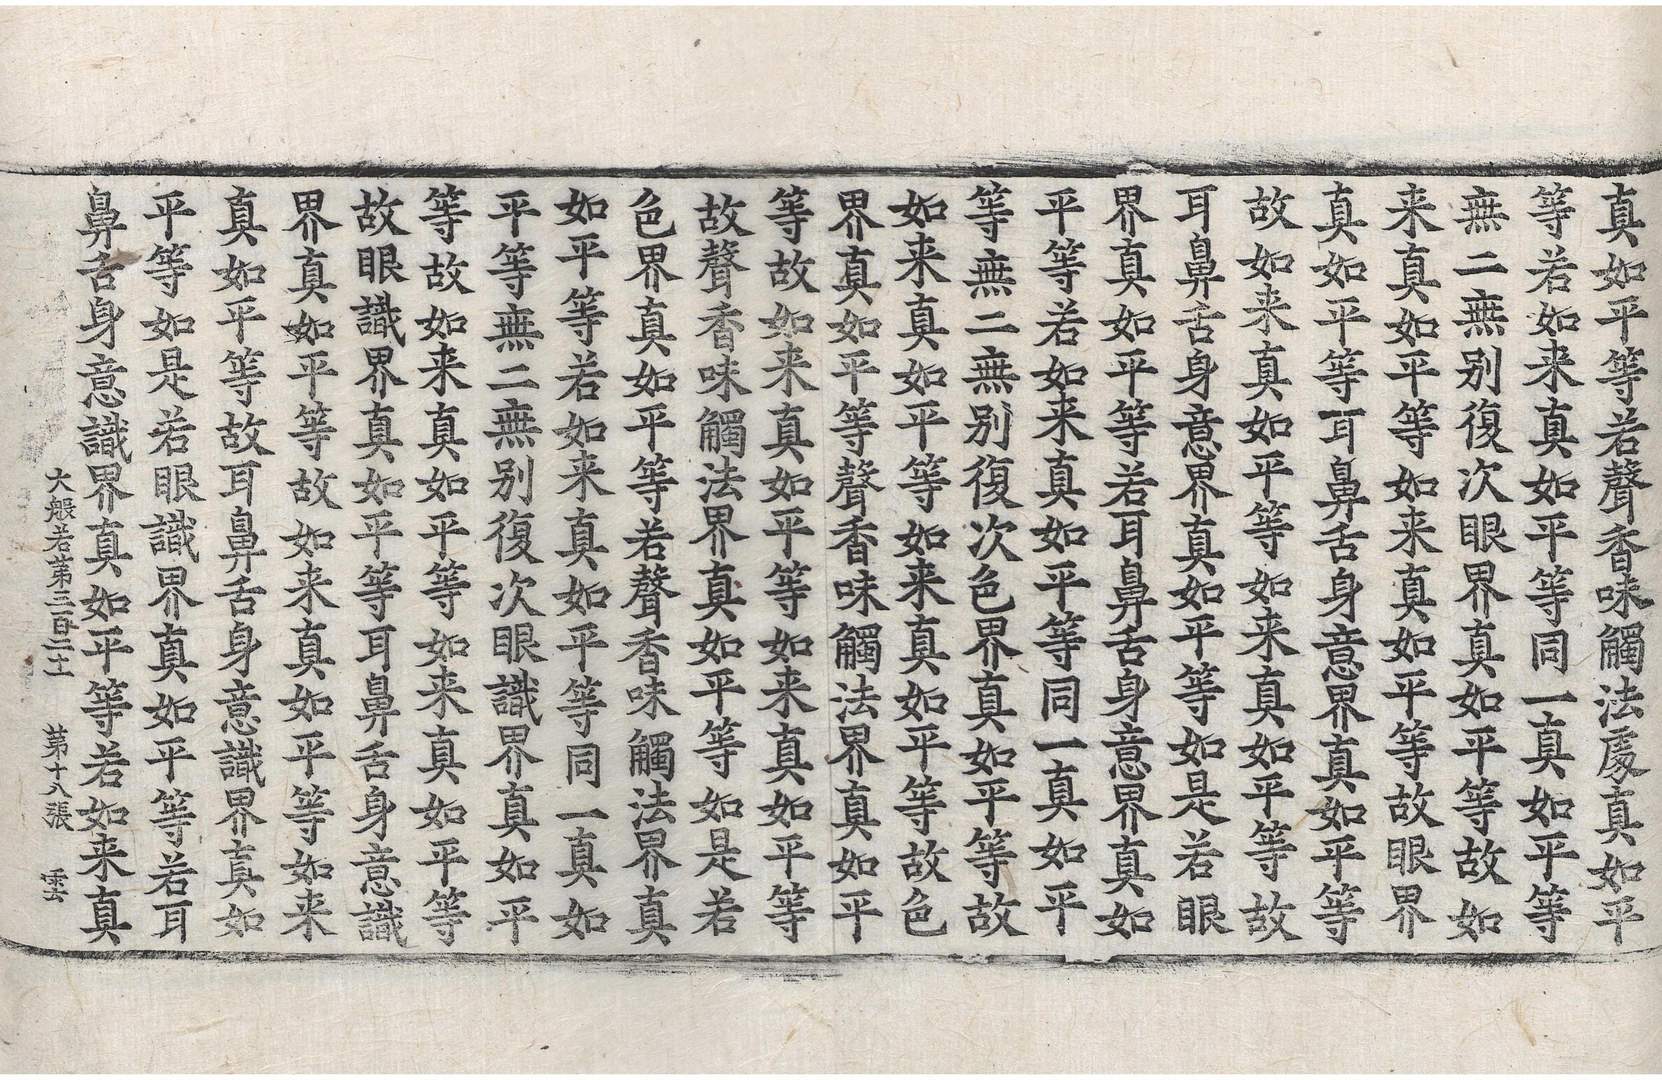 真如平等若聲香味觸法處真如平
等若如来真如平等同一真如平等
無二無别復次眼界真如平等故如
来真如平等如来真如平等故眼界
真如平等耳鼻舌身意界真如平等
故如来真如平等如来真如平等故
耳鼻舌身意界真如平等如是若眼
界真如平等若耳鼻舌身意界真如
平等若如来真如平等同一真如平
等無二無别復次色界真如平等故
如来真如平等如来真如平等故色
界真如平等聲香味觸法界真如平
等故如来真如平等如来真如平等
故聲香味觸法界真如平等如是若
色界真如平等若聲香味觸法界真
如平等若如来真如平等同一真如
平等無二無别復次眼識界真如平
等故如来真如平等如来真如平等
故眼識界真如平等耳鼻舌身意識
界真如平等故如来真如平等如来
真如平等故耳鼻舌身意識界真如
平等如是若眼識界真如平等若耳
鼻舌身意識界真如平等若如来真
大般若第三百二十一　第十八張　雲